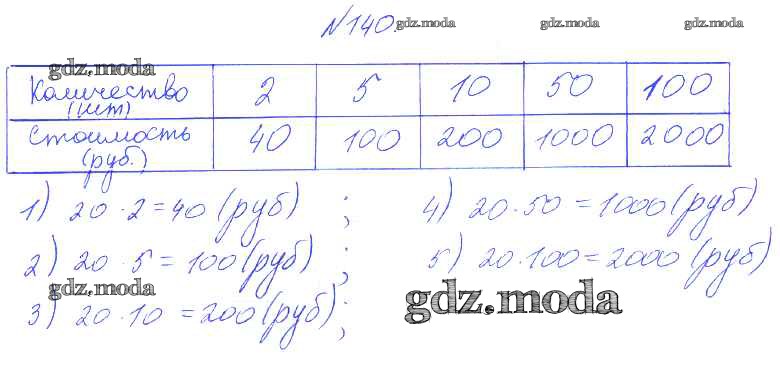 №140.
gdz.moda gdz.moda gdz.moda
gdz.moda
Количество (шт) 2 5 10 50 100
Стоимость (руб.) 40 100 200 1000 2000
1) 20 · 2 = 40 (руб) ; 4) 20 · 50 = 1000 (руб)
2) 20 · 5 = 100 (руб) ; 5) 20 · 100 = 2000 (руб)
gdz.moda gdz.moda
3) 20 · 10 = 200 (руб) ;